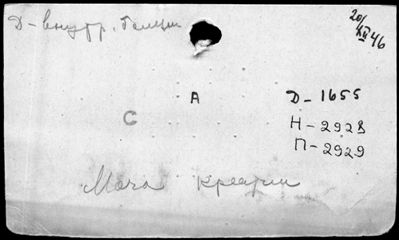 Д-внутр. Галиции
20/XII 46
А
С
Д-1655
Н-2928
П-2929
Моча креатин